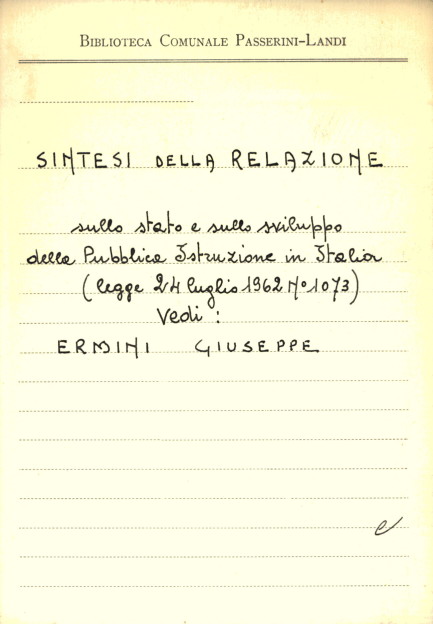 BIBLIOTECA COMUNALE PASSERINI-LANDI
SINTESI DELLA RELAZIONE
sullo stato e sullo sviluppo
della Pubblica Istruzione in Italia
(legge 24 luglio 1962 N° 1073)
Vedi:
ERMINI GIUSEPPE
e